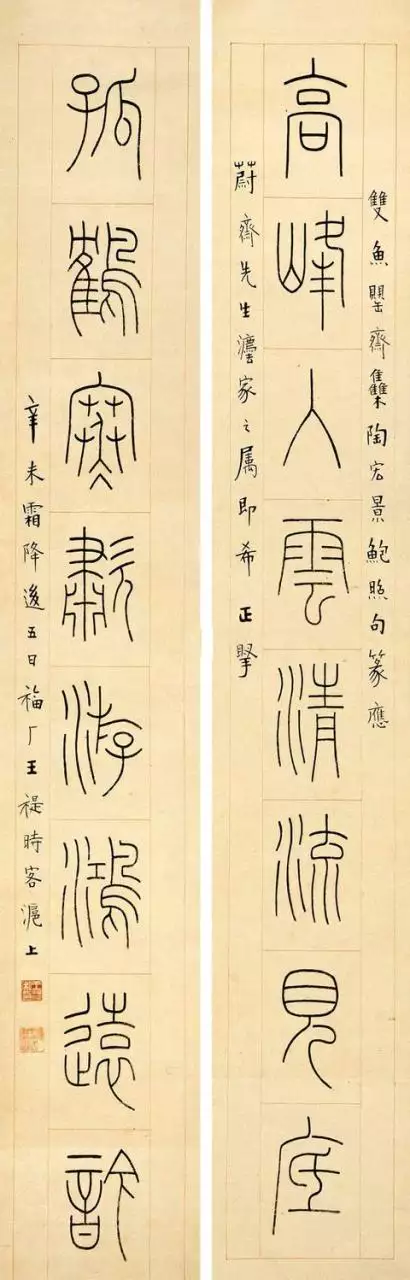 雙魚罌齋雧陶宏景鮑照句篆應
高峰入雲清流見底
蔚齊先生灋家之屬即希正掔
孤鶴寒歗游鴻遠訡
辛未霜降後五日福厂王禔時客滬上